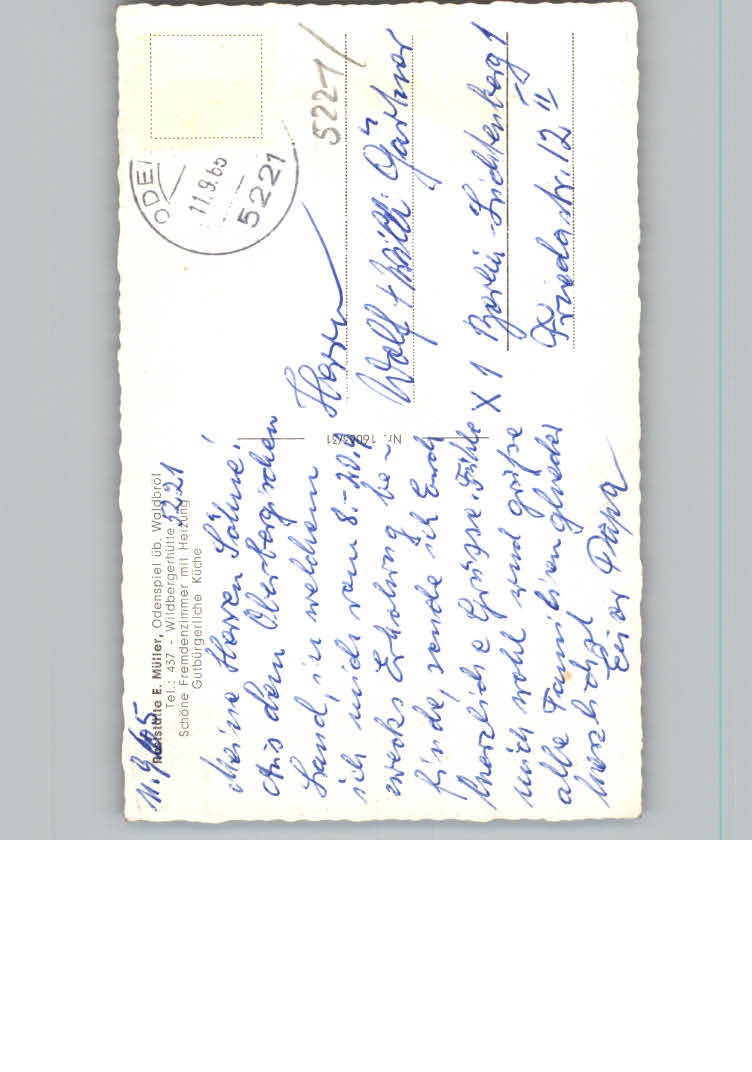 11.9.65
Raststätte E. Müller, Odenspiel üb. Waldbröl
Tel.: 437 - Wildbergerhütte 5221
Schöne Fremdenzimmer mit Heizung
Gutbürgerliche Küche
Meine Herren Söhne!
Aus dem Oberbergischen
Land, in welchem
ich mich vom 8.-20.9
zwecks Erholung be-
finde, sende ich Euch
herzliche Grüsse. Fühle
mich wohl und grüße
alle Familienglieder
herzlichst
Euer Papa
Nr. 16083/31
ODE
11.9.65
5221
5221
Herrn
Wolf + Gärtner
X 1 Berlin-Lichtenberg 1
Friedastr. 12 II